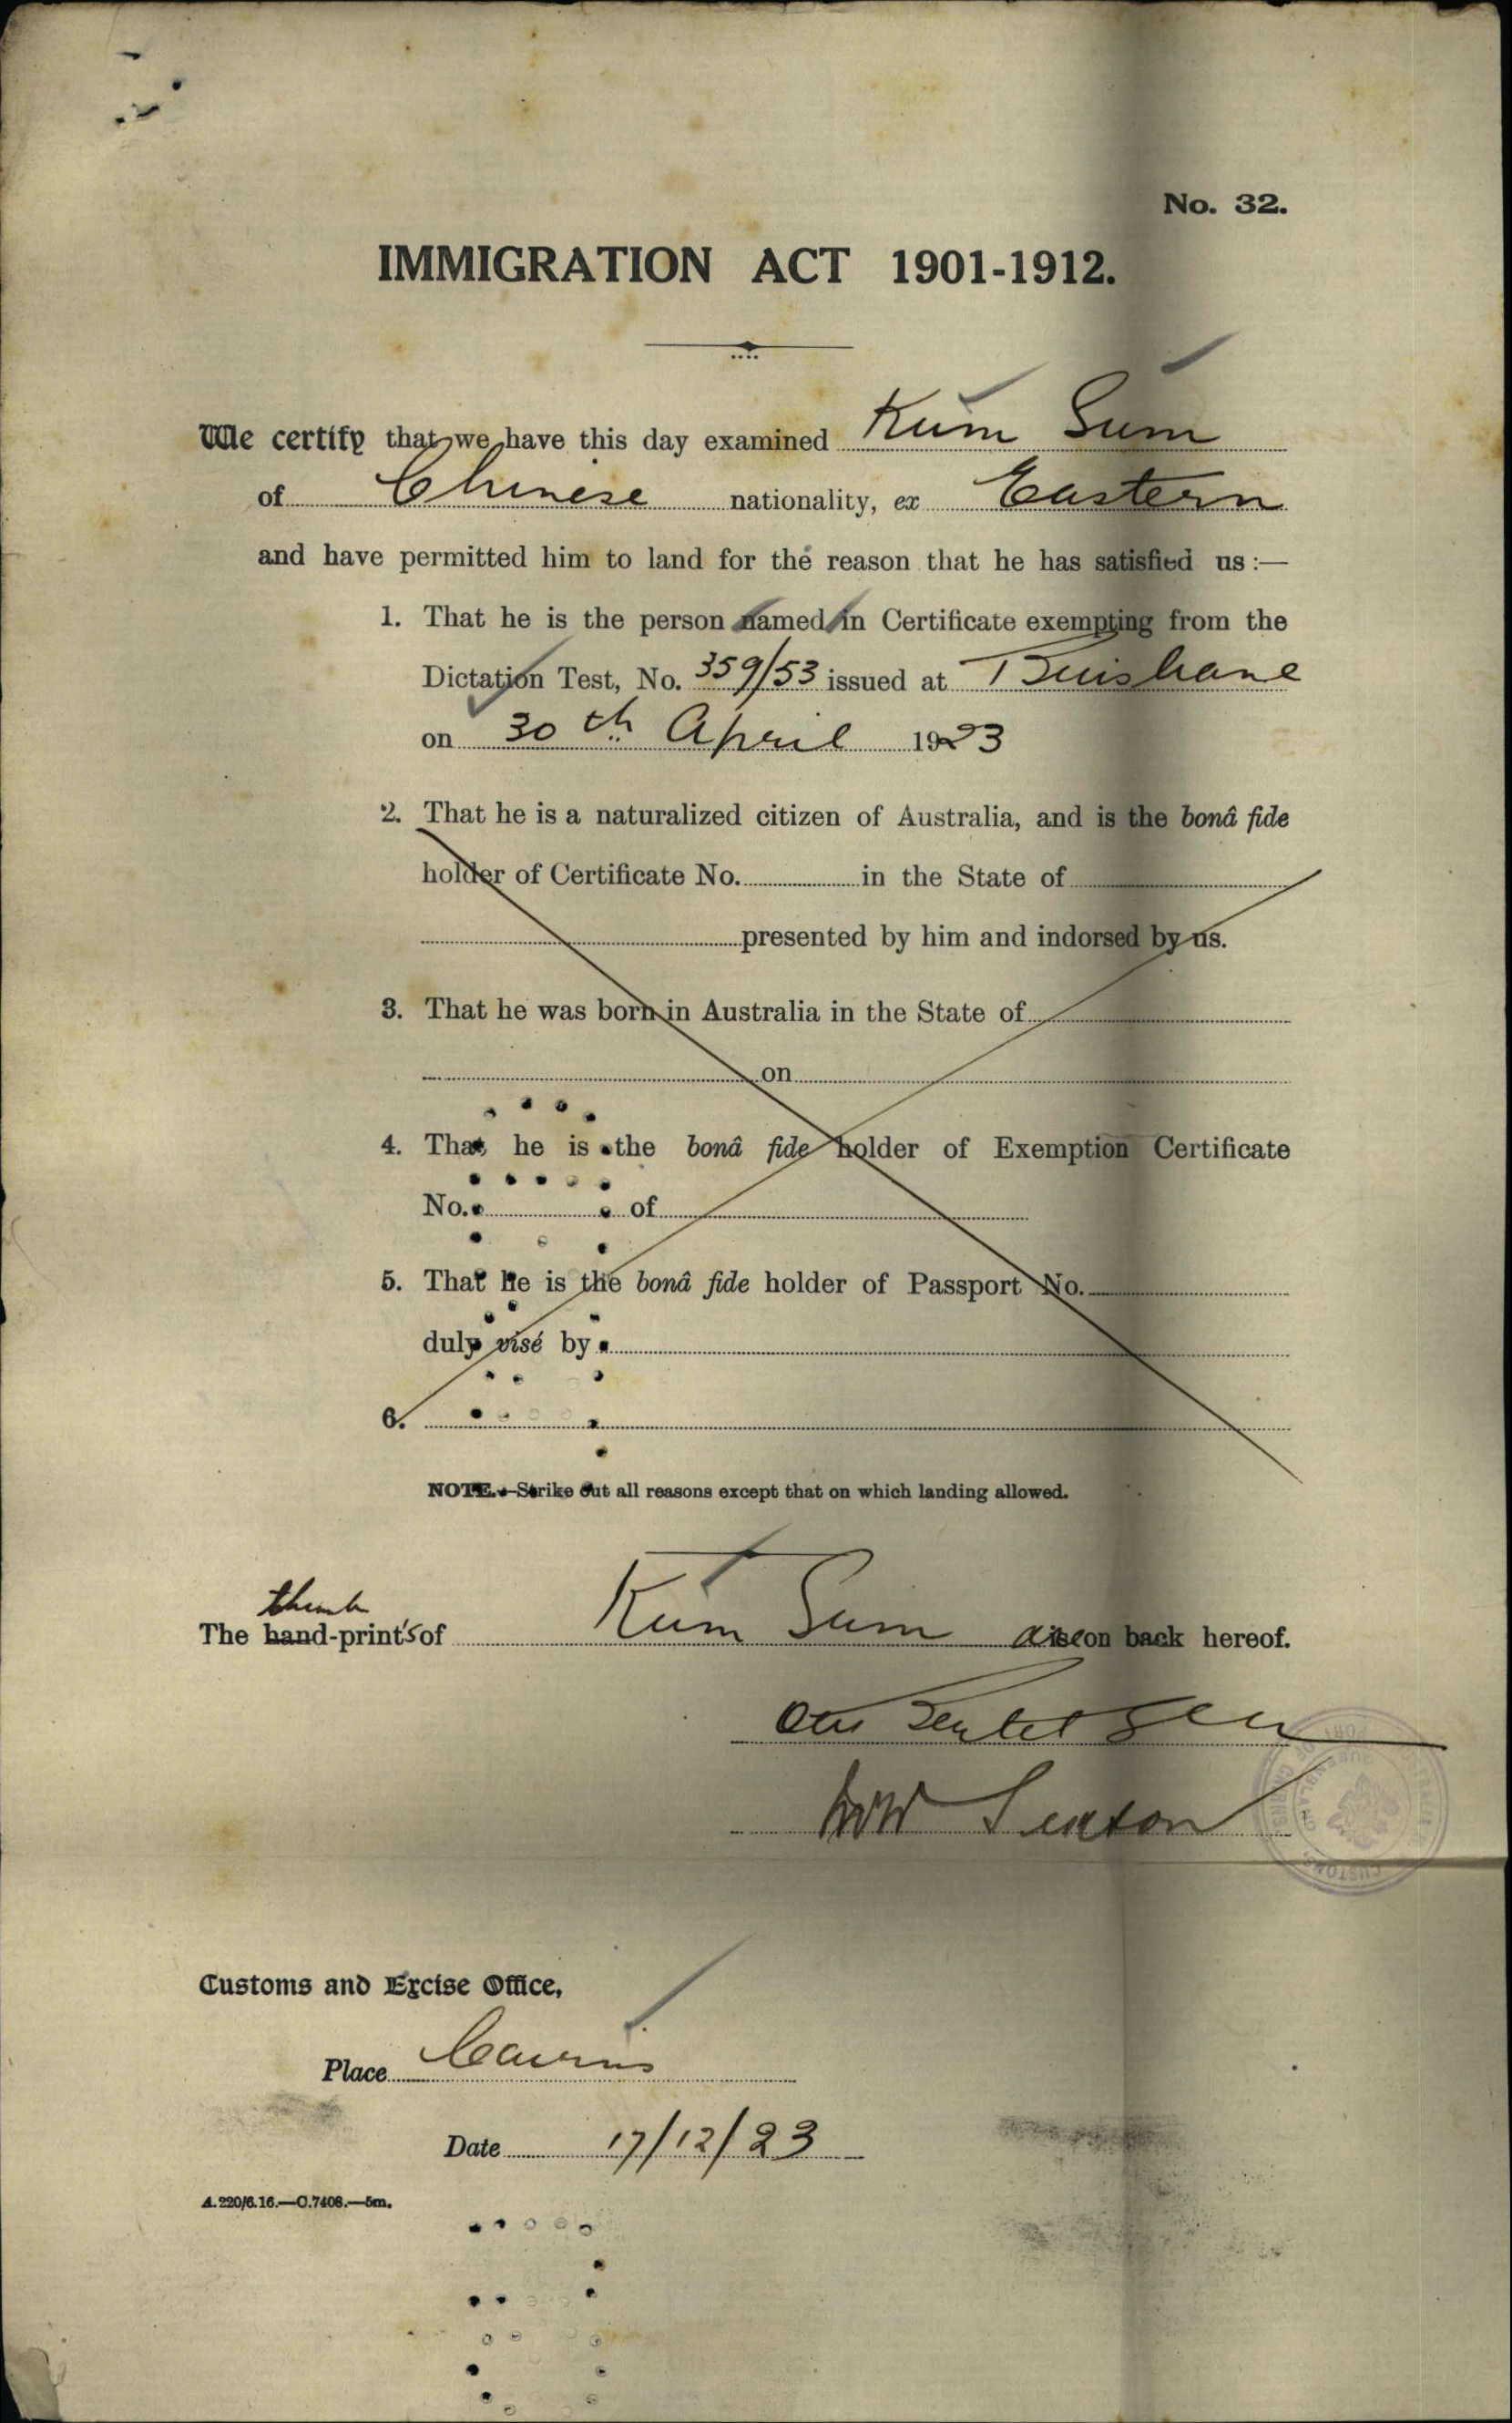 No. 32.
IMMIGRATION ACT 1901-1912.
We certify that we have this day examined Kum Sum
of Chinese nationality, ex Eastern
and have permitted him to land for the reason that he has satisfied us :—
1. That he is the person named in Certificate exempting from the
Dictation Test, No. 359/53 issued at Brisbane
on 30th April 1923
2. That he is a naturalized citizen of Australia, and is the bonâ fide
holder of Certificate No. in the State of
presented by him and indorsed by us.
3. That he was born in Australia in the State of
on
4. That he is the bonâ fide holder of Exemption Certificate
No. of
5. That he is the bonâ fide holder of Passport No.
duly visé by
6.
NOTE.—Strike out all reasons except that on which landing allowed.
thumb
The hand-print's of Kum Sum are on back hereof.
Customs and Excise Office,
Place Cairns
Date 17/12/23
A.220/6.16.—C.7408.—5m.